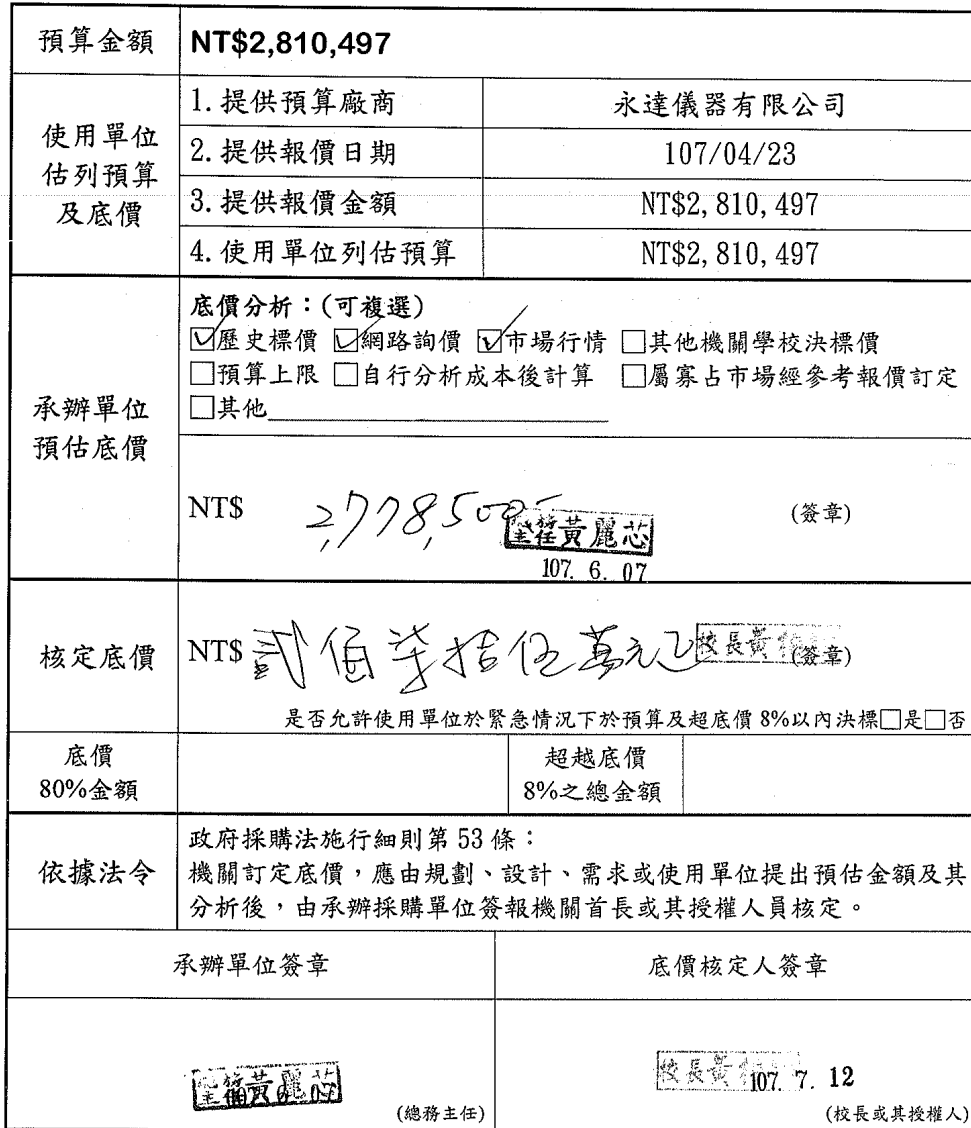 預算金額 NT$2,810,497
使用單位估列預算及底價
1.提供預算廠商 永達儀器有限公司
2.提供報價日期 107/04/23
3.提供報價金額 NT$2,810,497
4.使用單位列估預算 NT$2,810,497
承辦單位預估底價
底價分析：(可複選)
☑歷史標價 ☑網路詢價 ☑市場行情 □其他機關學校決標價
□預算上限 □自行分析成本後計算 □屬寡占市場經參考報價訂定
□其他
NT$ 2,778,500- (簽章)
總務主任黃麗芯
107. 6. 07
核定底價 NT$ 貳佰柒拾伍萬元正 校長黃 (簽章)
是否允許使用單位於緊急情況下於預算及超底價 8%以內決標□是□否
底價80%金額 超越底價8%之總金額
依據法令
政府採購法施行細則第 53 條：
機關訂定底價，應由規劃、設計、需求或使用單位提出預估金額及其
分析後，由承辦採購單位簽報機關首長或其授權人員核定。
承辦單位簽章 底價核定人簽章
黃麗芯 校長黃 107. 7. 12
(總務主任) (校長或其授權人)